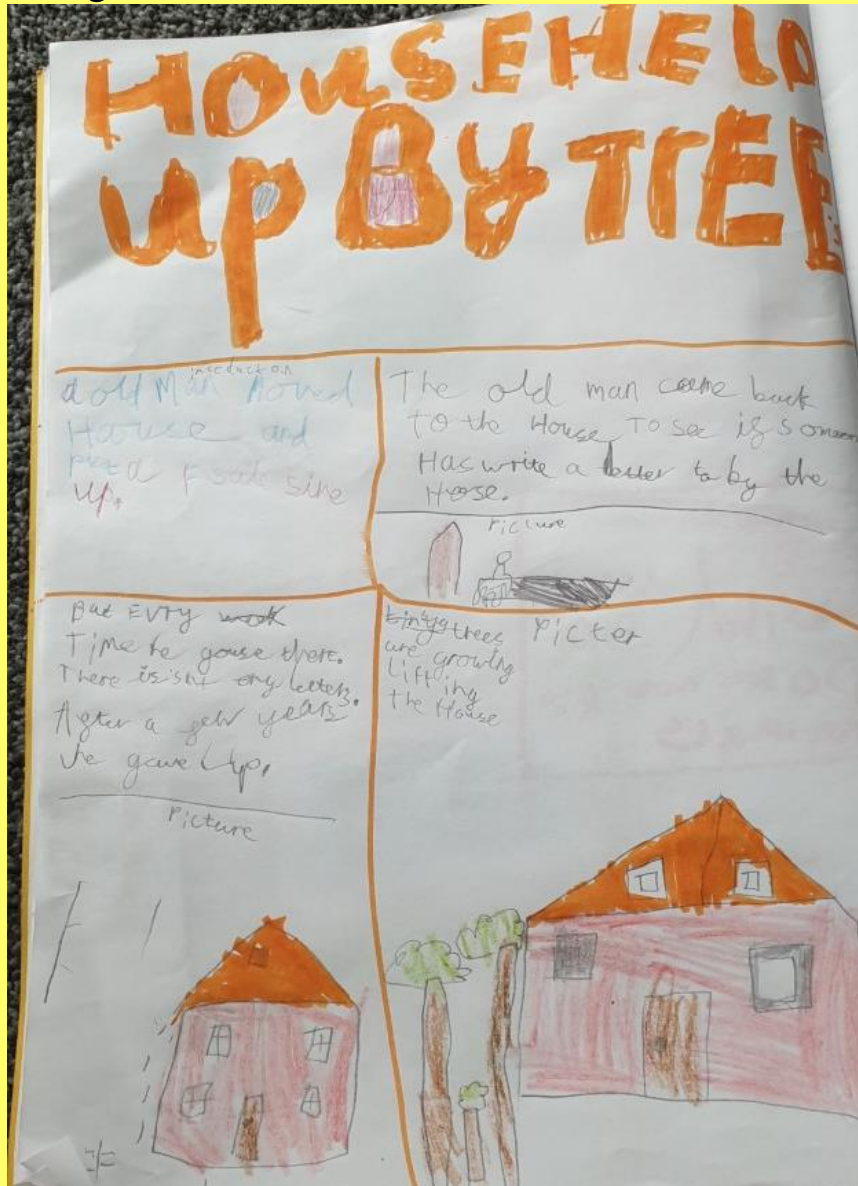 HOUSEHELD
up By TrEE
intcduction
a old Man Moved
House and
put a F sale sine
up.
The old man came back
to the House To see if someon
Has write a letter to by the
House.
Picture
But EVry
Time he gouse there.
There is isnt eny letters.
After a few years
he gave Up.
Picture
trees
are growing
Lifting
the House
Picter